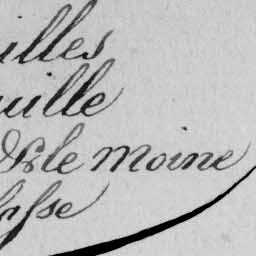 illes
uille
le moine
asse